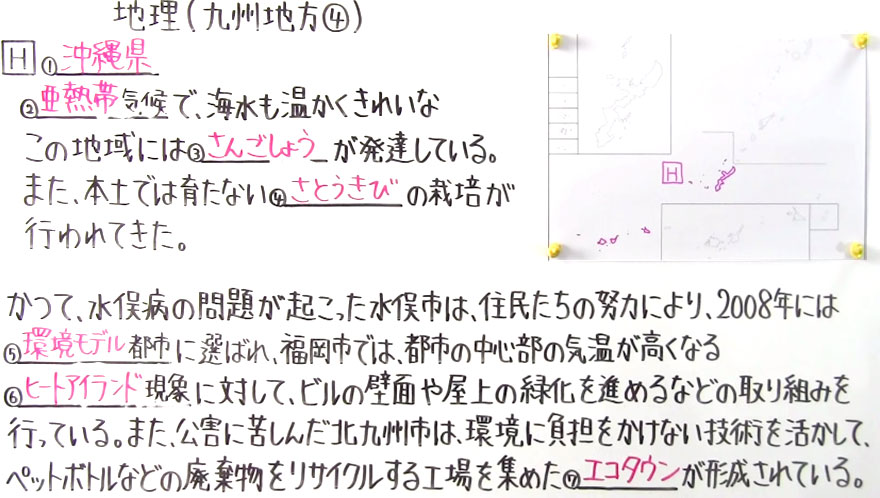 地理(九州地方④)
H ①沖縄県
②亜熱帯気候で、海水も温かくきれいな
この地域には③さんごしょうが発達している。
また、本土では育たない④さとうきびの栽培が
行われてきた。
H
かつて、水俣病の問題が起こった水俣市は、住民たちの努力により、2008年には
⑤環境モデル都市に選ばれ、福岡市では、都市の中心部の気温が高くなる
⑥ヒートアイランド現象に対して、ビルの壁面や屋上の緑化を進めるなどの取り組みを
行っている。また、公害に苦しんだ北九州市は、環境に負担をかけない技術を活かして、
ペットボトルなどの廃棄物をリサイクルする工場を集めた⑦エコタウンが形成されている。